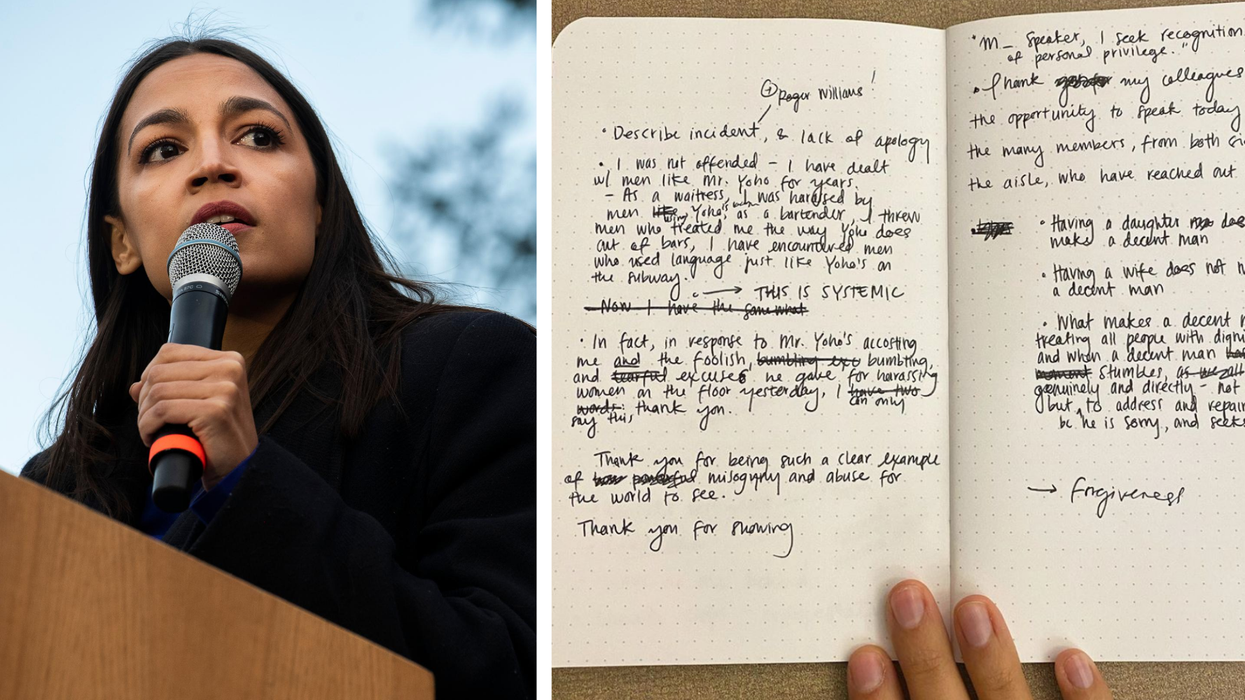 + Roger Williams!
• Describe incident, & lack of apology
• I was not offended - I have dealt
w/ men like Mr. Yoho for years.
- As a waitress, I was harassed by
men w/ Yoho's, when as a bartender, I threw
men who treated me the way Yoho does
out of bars, I have encountered men
who used language just like Yoho's on
the subway.
→ THIS IS SYSTEMIC
Now I have the somewhat
• In fact, in response to Mr. Yoho's accosting
me and the foolish, bumbling exc bumbling,
and tearful excuses he gave for harassing
women on the floor yesterday, I have two
words: can only
say this, thank you.
Thank you for being such a clear example
of how powerful misogyny and abuse for
the world to see.
Thank you for showing
• "M_ Speaker, I seek recognition
of personal privilege."
• Thank my colleagues
the opportunity to speak today
the many members, from both
the aisle, who have reached out
• Having a daughter does
make a decent man
• Having a wife does not
a decent man
• What makes a decent
treating all people with
and when a decent man has
moment stumbles, as we all
genuinely and directly - not
but, to address and repair
be he is sorry, and seeks
→ forgiveness